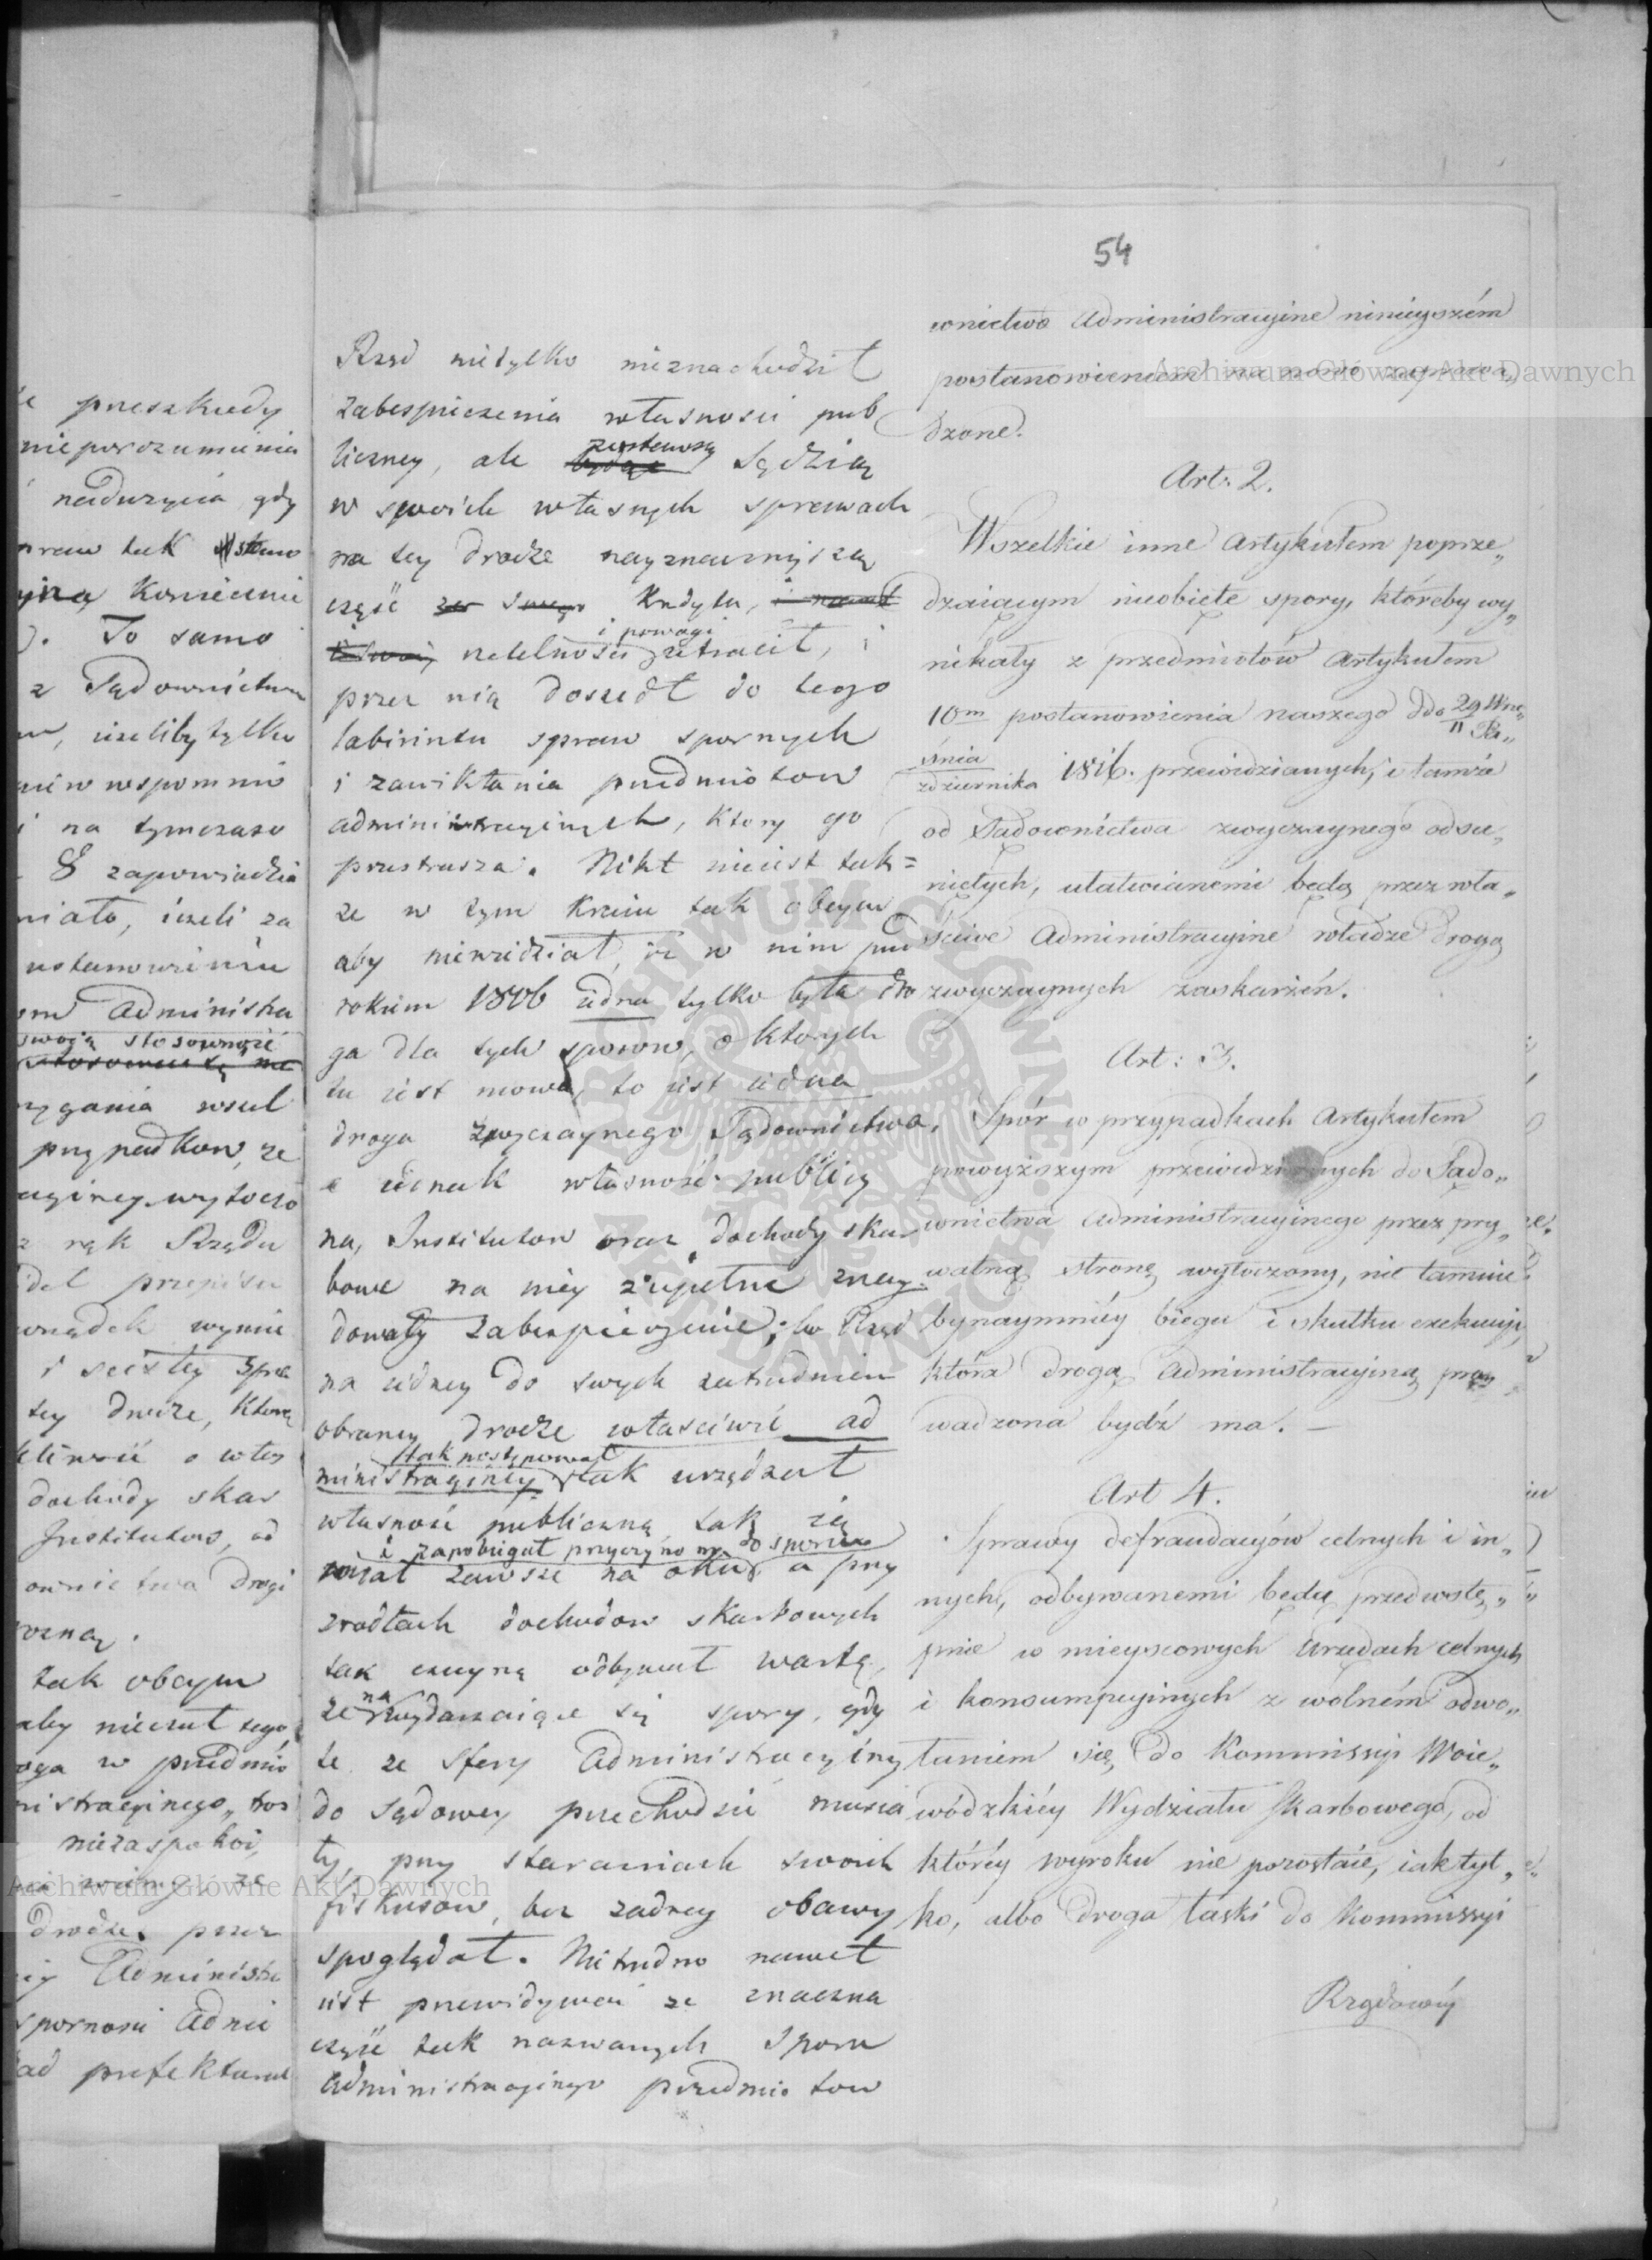 54
że przeszkody
nieporozumienia
nadużycia, gdy
praw tak
koniecznie
). To samo
z Sądownictwa
ieżeliby tylko
wspomnio
i na tymczaso
§ zapowiedzia
miało, ieżeli za
ustanowieniu
Administra
swoią stosowność
przypadkow, ze
acyiney wytoczo
z rąk Rządu
przepisu
i scisłey
tey drodze, ktorą
dochody skar
Institutow, od
ownictwa drogi
tak obcym
aby nieczuł tego
oga w przedmio
nistracyinego,
niezaspokoi,
drodze przez
Administra
spornosci Admi
prefektural
Rząd nietylko nieznachodził
zabespieczenia własnosci pub
liczney, ale zostawszy Sędzią
w swoich własnych sprawach
na tey drodze nayznacznieyszą
część swego kredytu,
i powagi
rzetelności utracił, i
przez nią doszedł do tego
labirintu spraw spornych
i zawikłania przedmiotow
administracyinych, ktory go
przestrasza. Nikt nieiest tak=
ze w tym kraiu tak obcym
aby niewidział, iż w nim przed
rokiem 1806 iedna tylko była dro
ga dla tych sporow, o ktorych
tu iest mowa, to iest iedna
droga zwyczaynego Sądownictwa,
a iednak własność publicz
na, Institutow oraz dochody skar
bowe na niey zupełne znay
dowały zabespieczenie; bo Rząd
na iedney do swych zatrudnien
obraney drodze właściwie ad
i tak postępował
ministracyiney tak urządzał
własność publiczną, tak ią
i zapobiegał przyczynom do sporu
miał zawsze na oku, a przy
zrodłach dochodow skarbowych
tak czuyną odbywał wartę,
ze na wydarzaiące się spory, gdy
te ze sfery Administracyiney
do sądowey przechodzić musia
ły, przy staraniach swoich
fiskusow, bez zadney obawy
spoglądał. Nietrudno nawet
iest przewidywać ze znaczna
część tak nazwanych sporn
administracyinego przedmiotow
wnictwo Administracyine ninieyszém
postanowieniem na nowo zaprowa„
dzone.
Art. 2.
Wszelkie inne Artykułem poprze„
dzaiącym nieobięte spory, któreby wy„
nikały z przedmiotów Artykułem
10m postanowienia naszego ddo 29 Wrze„
śnia / 11 Pa„
zdziernika 1816. przewidzianych, i tamże
od Sądownictwa zwyczaynego odsu„
niętych, ułatwianemi będą przez wła„
ściwe Administracyine władze drogą
zwyczaynych zaskarżéń.
Art: 3.
Spór w przypadkach Artykułem
powyższym przewidzianych do Sądo„
wnictwa Administracyinego przez pry„
watną stronę wytoczony, nie tamuie
bynaymniéy biegu i skutku exekucyi,
która drogą Administracyiną pro„
wadzona bydź ma. —
Art 4.
Sprawy defraudacyów celnych i in„
nych, odbywanemi będą przedwstę„
pnie w mieyscowych Urzędach celnych
i konsumpcyinych z wolném odwo„
łaniem się do Kommissyi Woie„
wódzkiéy Wydziału Skarbowego, od
któréy wyroku nie pozostaie, iak tyl„
ko, albo droga łaski do Kommissyi
Rządowéy
Archiwum Główne Akt Dawnych
Archiwum Główne Akt Dawnych
ARCHIWUM GŁÓWNE AKT DAWNYCH